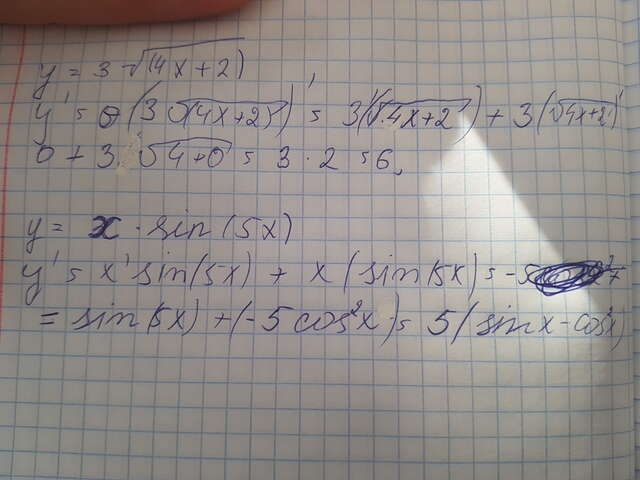 y = 3 √(4x+2)
y' = (3 √(4x+2))' = 3'(√4x+2) + 3(√4x+2)'
0 + 3 √4+0 = 3 · 2 = 6,
y = x · sin(5x)
y' = x' sin(5x) + x (sin(5x) = -5
= sin(5x) + (-5 cos²x) = 5(sinx - cos²x)